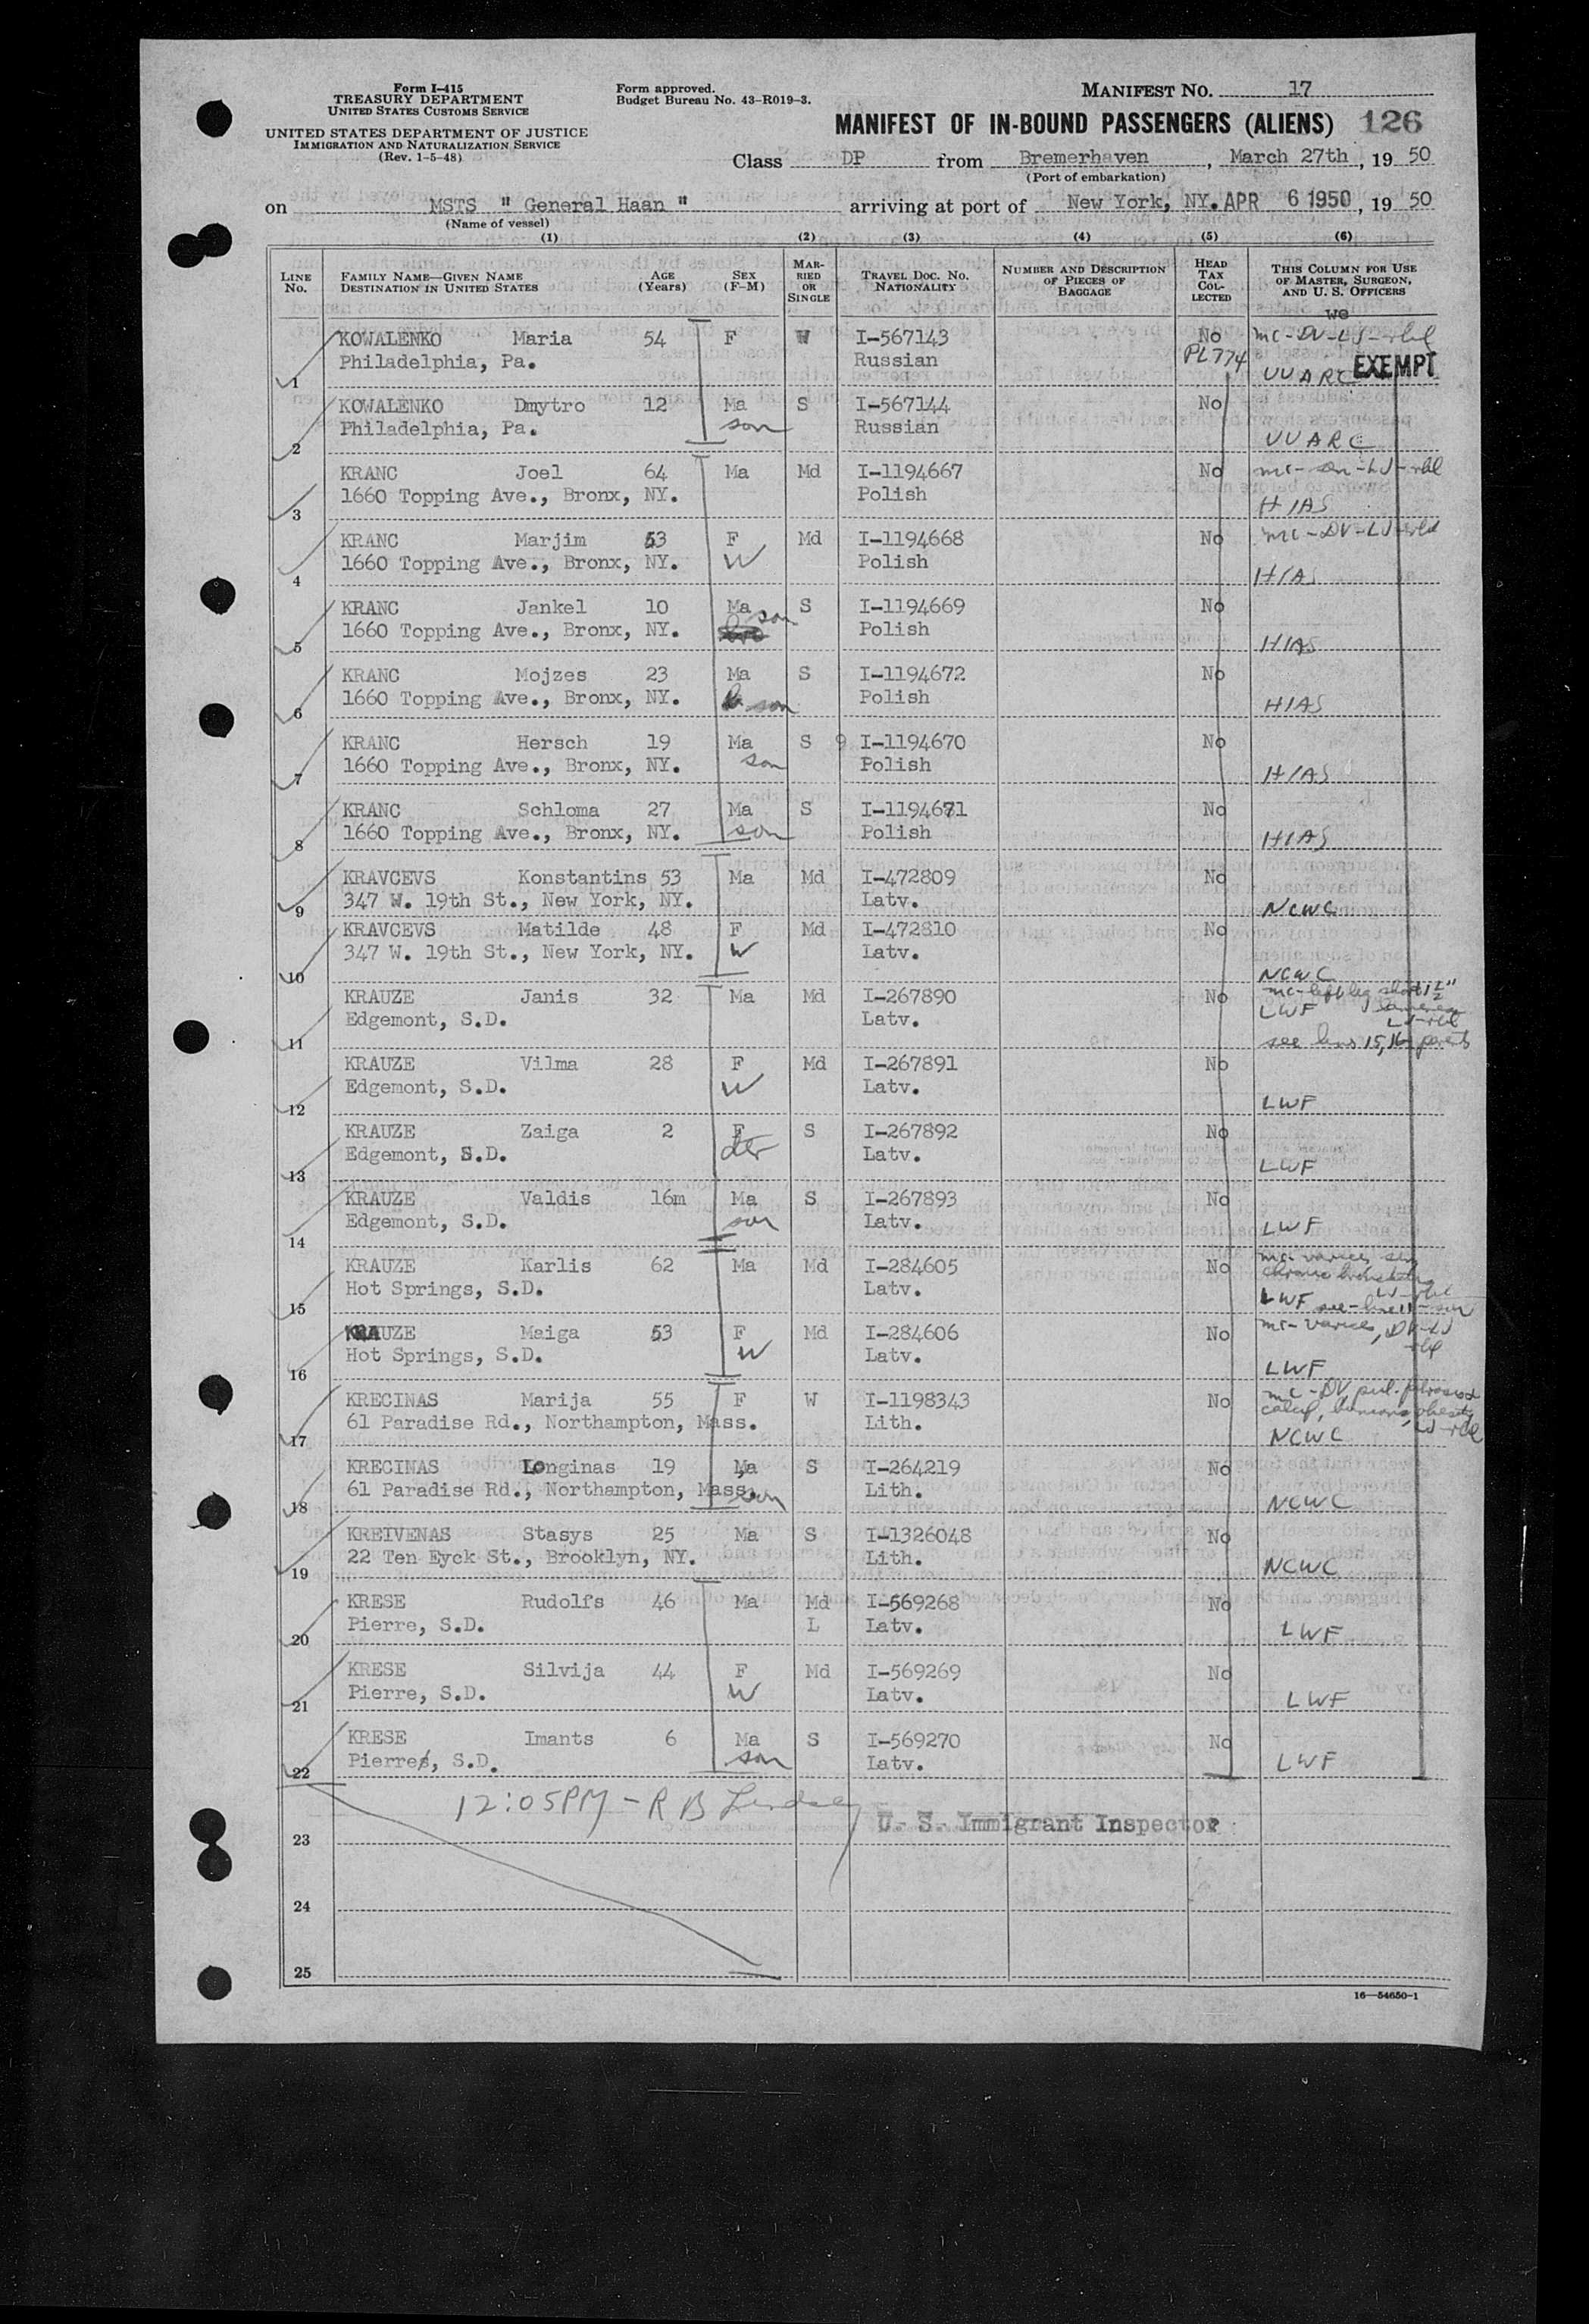 Form I-415
TREASURY DEPARTMENT
UNITED STATES CUSTOMS SERVICE
UNITED STATES DEPARTMENT OF JUSTICE
IMMIGRATION AND NATURALIZATION SERVICE
(Rev. 1-5-48)
Form approved.
Budget Bureau No. 43-R019-3.
MANIFEST NO. 17
MANIFEST OF IN-BOUND PASSENGERS (ALIENS) 126
Class DP from Bremerhaven, March 27th, 19 50
(Port of embarkation)
on MSTS " General Haan " arriving at port of New York, NY. APR 6 1950, 19 50
(Name of vessel)
(1) (2) (3) (4) (5) (6)
LINE No. FAMILY NAME—GIVEN NAME DESTINATION IN UNITED STATES AGE (Years) SEX (F-M) MARRIED OR SINGLE TRAVEL DOC. NO. NATIONALITY NUMBER AND DESCRIPTION OF PIECES OF BAGGAGE HEAD TAX COLLECTED THIS COLUMN FOR USE OF MASTER, SURGEON, AND U. S. OFFICERS
KOWALENKO Maria 54 F W I-567143 No mc-DV-LJ-rhl
1 Philadelphia, Pa. Russian PL774 UUARC EXEMPT
KOWALENKO Dmytro 12 Ma S I-567144 No
2 Philadelphia, Pa. son Russian UUARC
KRANC Joel 64 Ma Md I-1194667 No
3 1660 Topping Ave., Bronx, NY. Polish HIAS
KRANC Marjim 53 F Md I-1194668 No mc-DV-LJ-rhl
4 1660 Topping Ave., Bronx, NY. W Polish HIAS
KRANC Jankel 10 Ma S I-1194669 No
5 1660 Topping Ave., Bronx, NY. son Polish HIAS
KRANC Mojzes 23 Ma S I-1194672 No
6 1660 Topping Ave., Bronx, NY. son Polish HIAS
KRANC Hersch 19 Ma S 9 I-1194670 No
7 1660 Topping Ave., Bronx, NY. son Polish HIAS
KRANC Schloma 27 Ma S I-1194671 No
8 1660 Topping Ave., Bronx, NY. son Polish HIAS
KRAVCEVS Konstantins 53 Ma Md I-472809 No
9 347 W. 19th St., New York, NY. Latv. NCWC
KRAVCEVS Matilde 48 F Md I-472810 No
10 347 W. 19th St., New York, NY. W Latv. NCWC
KRAUZE Janis 32 Ma Md I-267890 No mc-left leg short 1½"
11 Edgemont, S.D. Latv. LWF
see lines 15, 16 parents
KRAUZE Vilma 28 F Md I-267891 No
12 Edgemont, S.D. W Latv. LWF
KRAUZE Zaiga 2 F S I-267892 No
13 Edgemont, S.D. dtr Latv. LWF
KRAUZE Valdis 16m Ma S I-267893 No
14 Edgemont, S.D. son Latv. LWF
KRAUZE Karlis 62 Ma Md I-284605 No
15 Hot Springs, S.D. Latv. LWF see-line 11-son
KRAUZE Maiga 53 F Md I-284606 No mc-varices, DV-LJ
16 Hot Springs, S.D. W Latv. LWF
KRECINAS Marija 55 F W I-1198343 No
17 61 Paradise Rd., Northampton, Mass. Lith. NCWC
KRECINAS Longinas 19 Ma S I-264219 No
18 61 Paradise Rd., Northampton, Mass. son Lith. NCWC
KREIVENAS Stasys 25 Ma S I-1326048 No
19 22 Ten Eyck St., Brooklyn, NY. Lith. NCWC
KRESE Rudolfs 46 Ma Md I-569268 No
20 Pierre, S.D. L Latv. LWF
KRESE Silvija 44 F Md I-569269 No
21 Pierre, S.D. W Latv. LWF
KRESE Imants 6 Ma S I-569270 No
22 Pierre, S.D. son Latv. LWF
12:05PM - R B Lindsay
U. S. Immigrant Inspector
23
24
25
16—54650-1